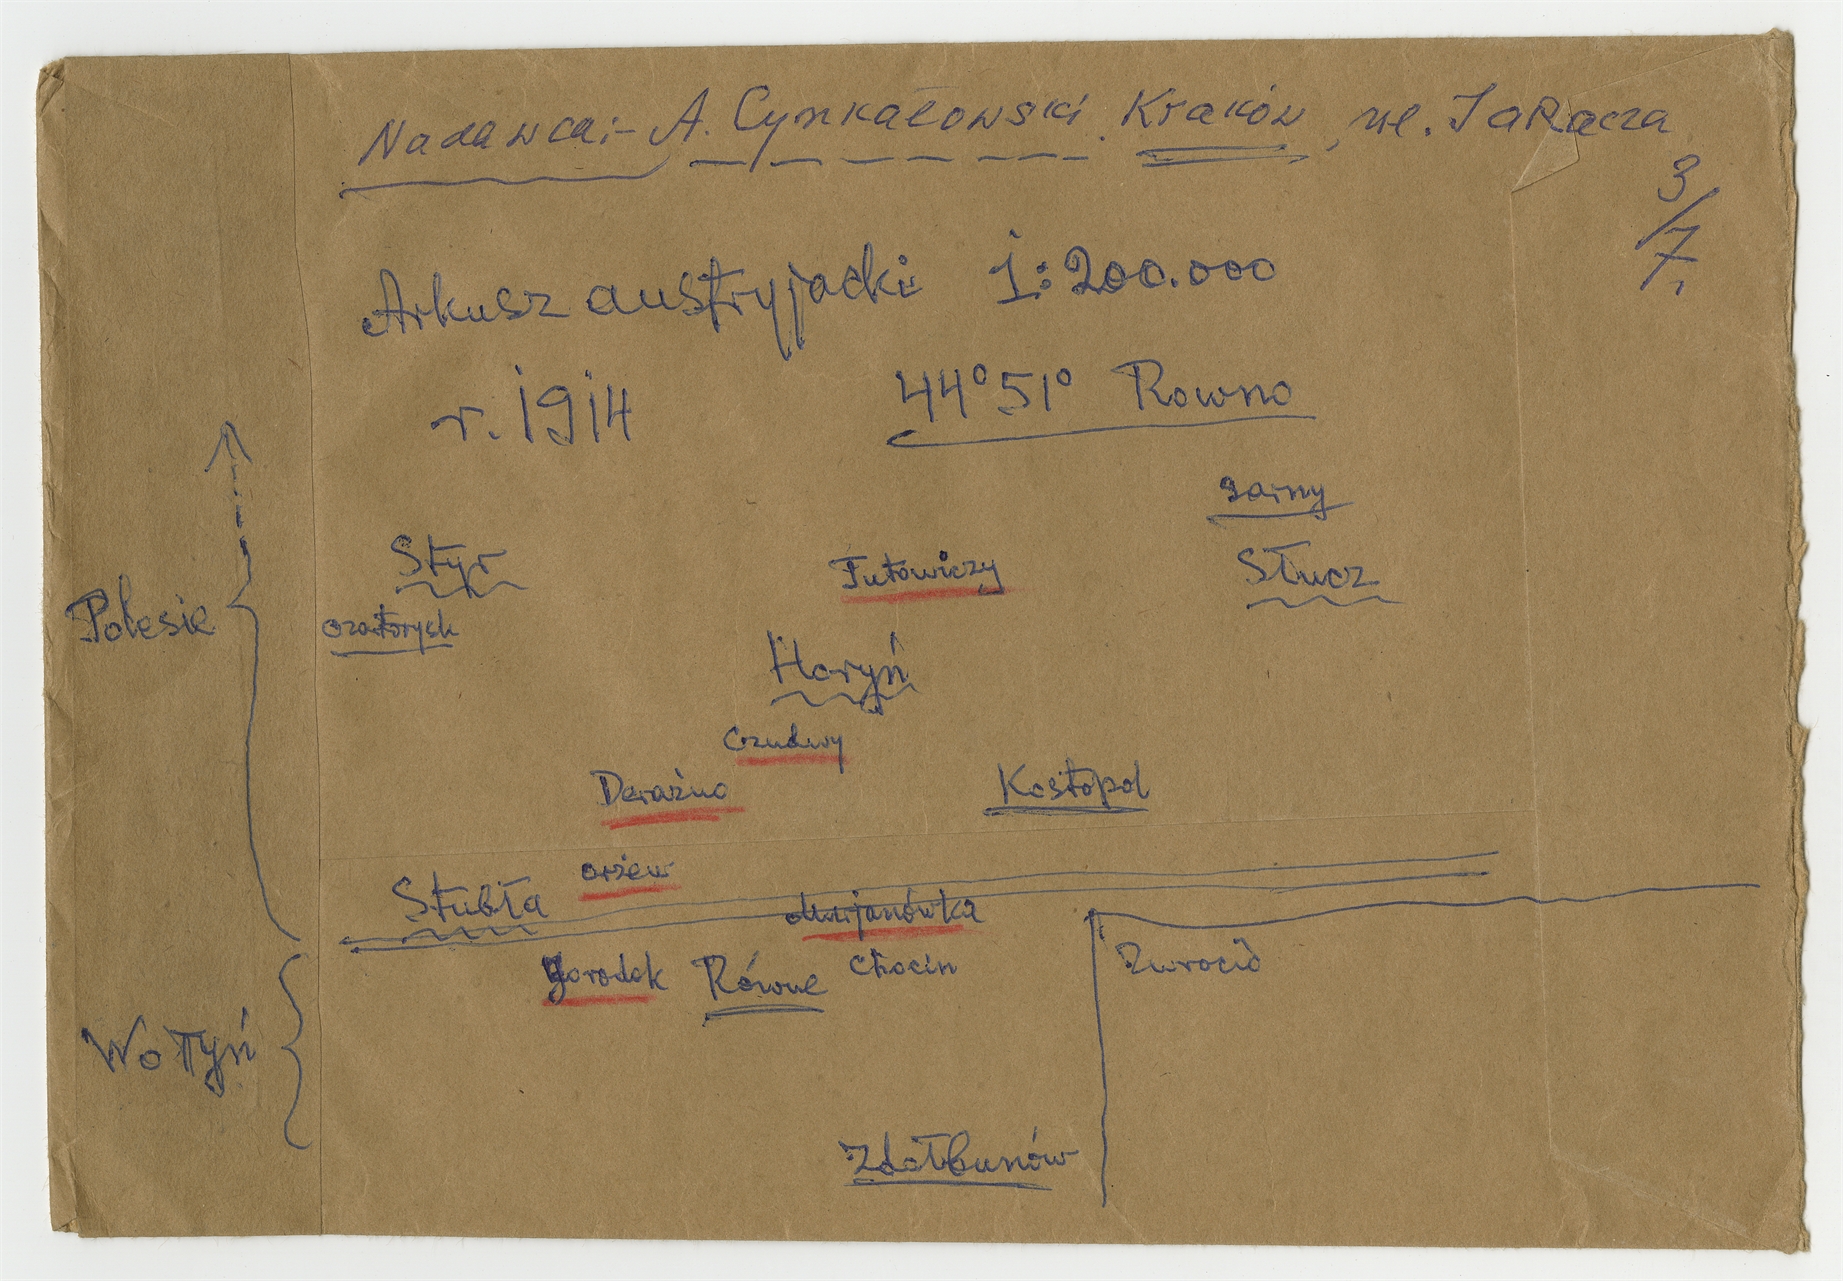 Nadawca:- A. Cynkałowski. Kraków, ul. Jaracza
3/7.
Arkusz austryjacki 1:200.000
r. 1914 44°51° Rowno
Sarny
Styr Tutowiczy Słucz
Polesie
Czartorysk
Horyń
Czudwy
Deraźno Kostopol
Orżew
Stubła
Horodok Równe Chocin
Wołyń
Zdołbunów